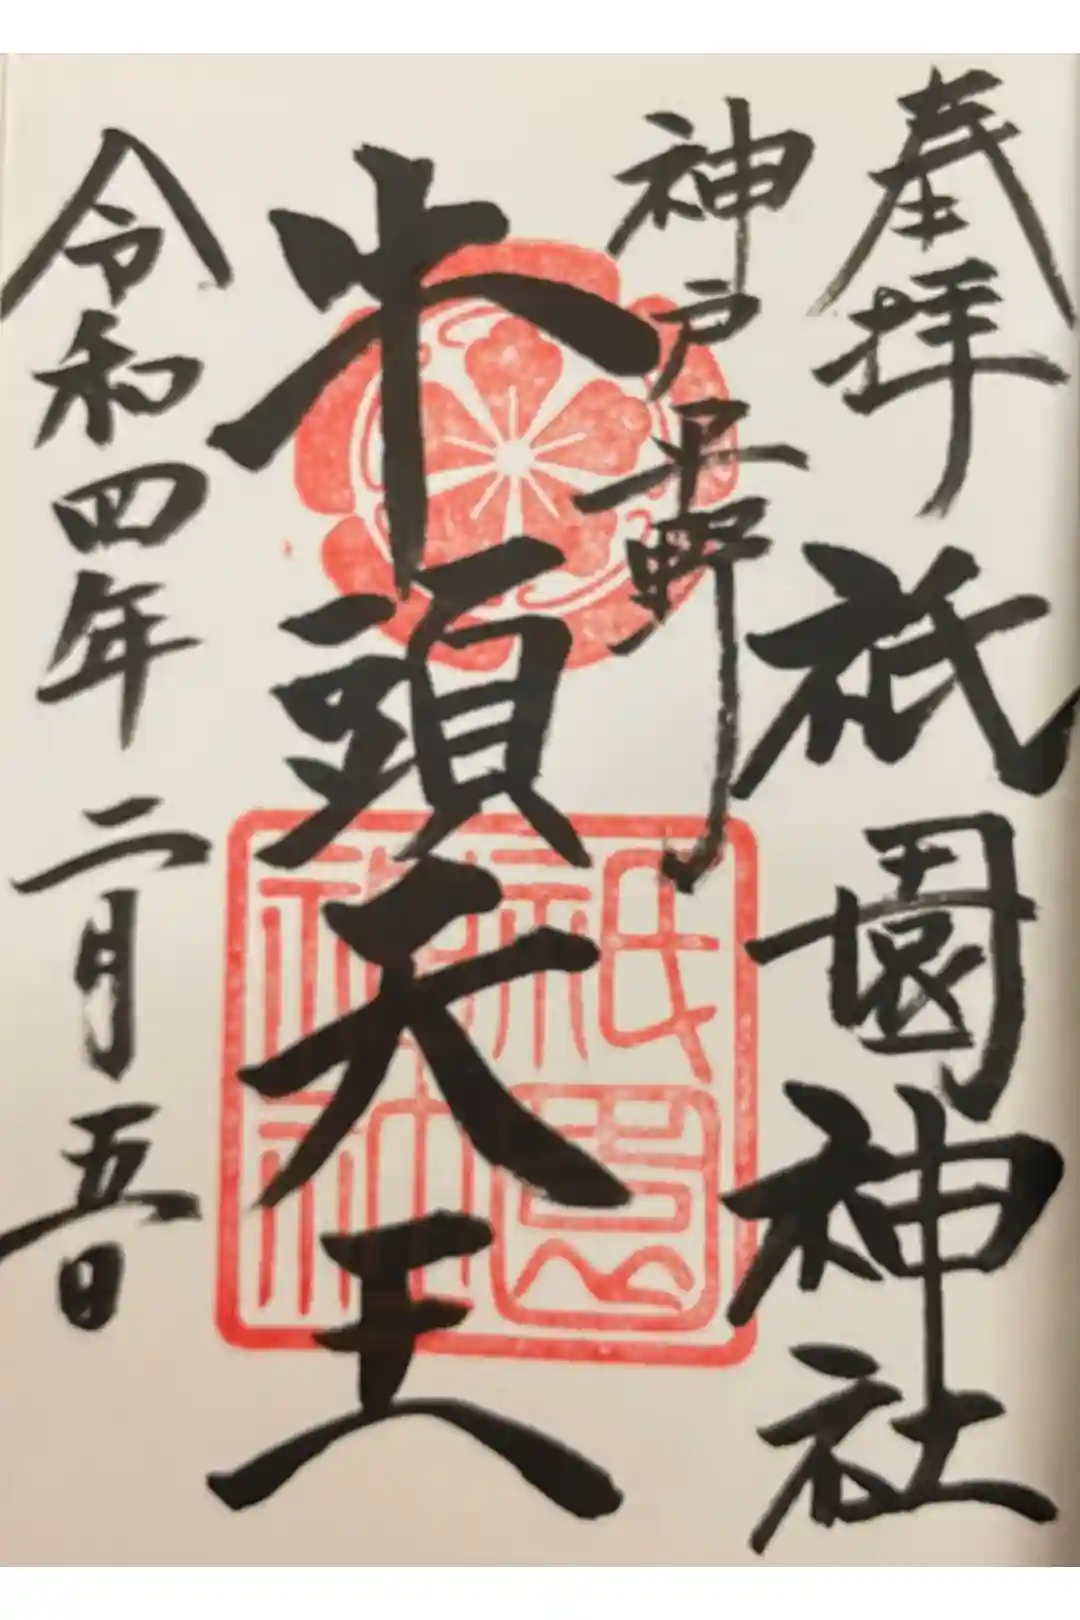 奉拝 祇園神社
神戸平野
牛頭天王
令和四年二月五日
祇園
神社